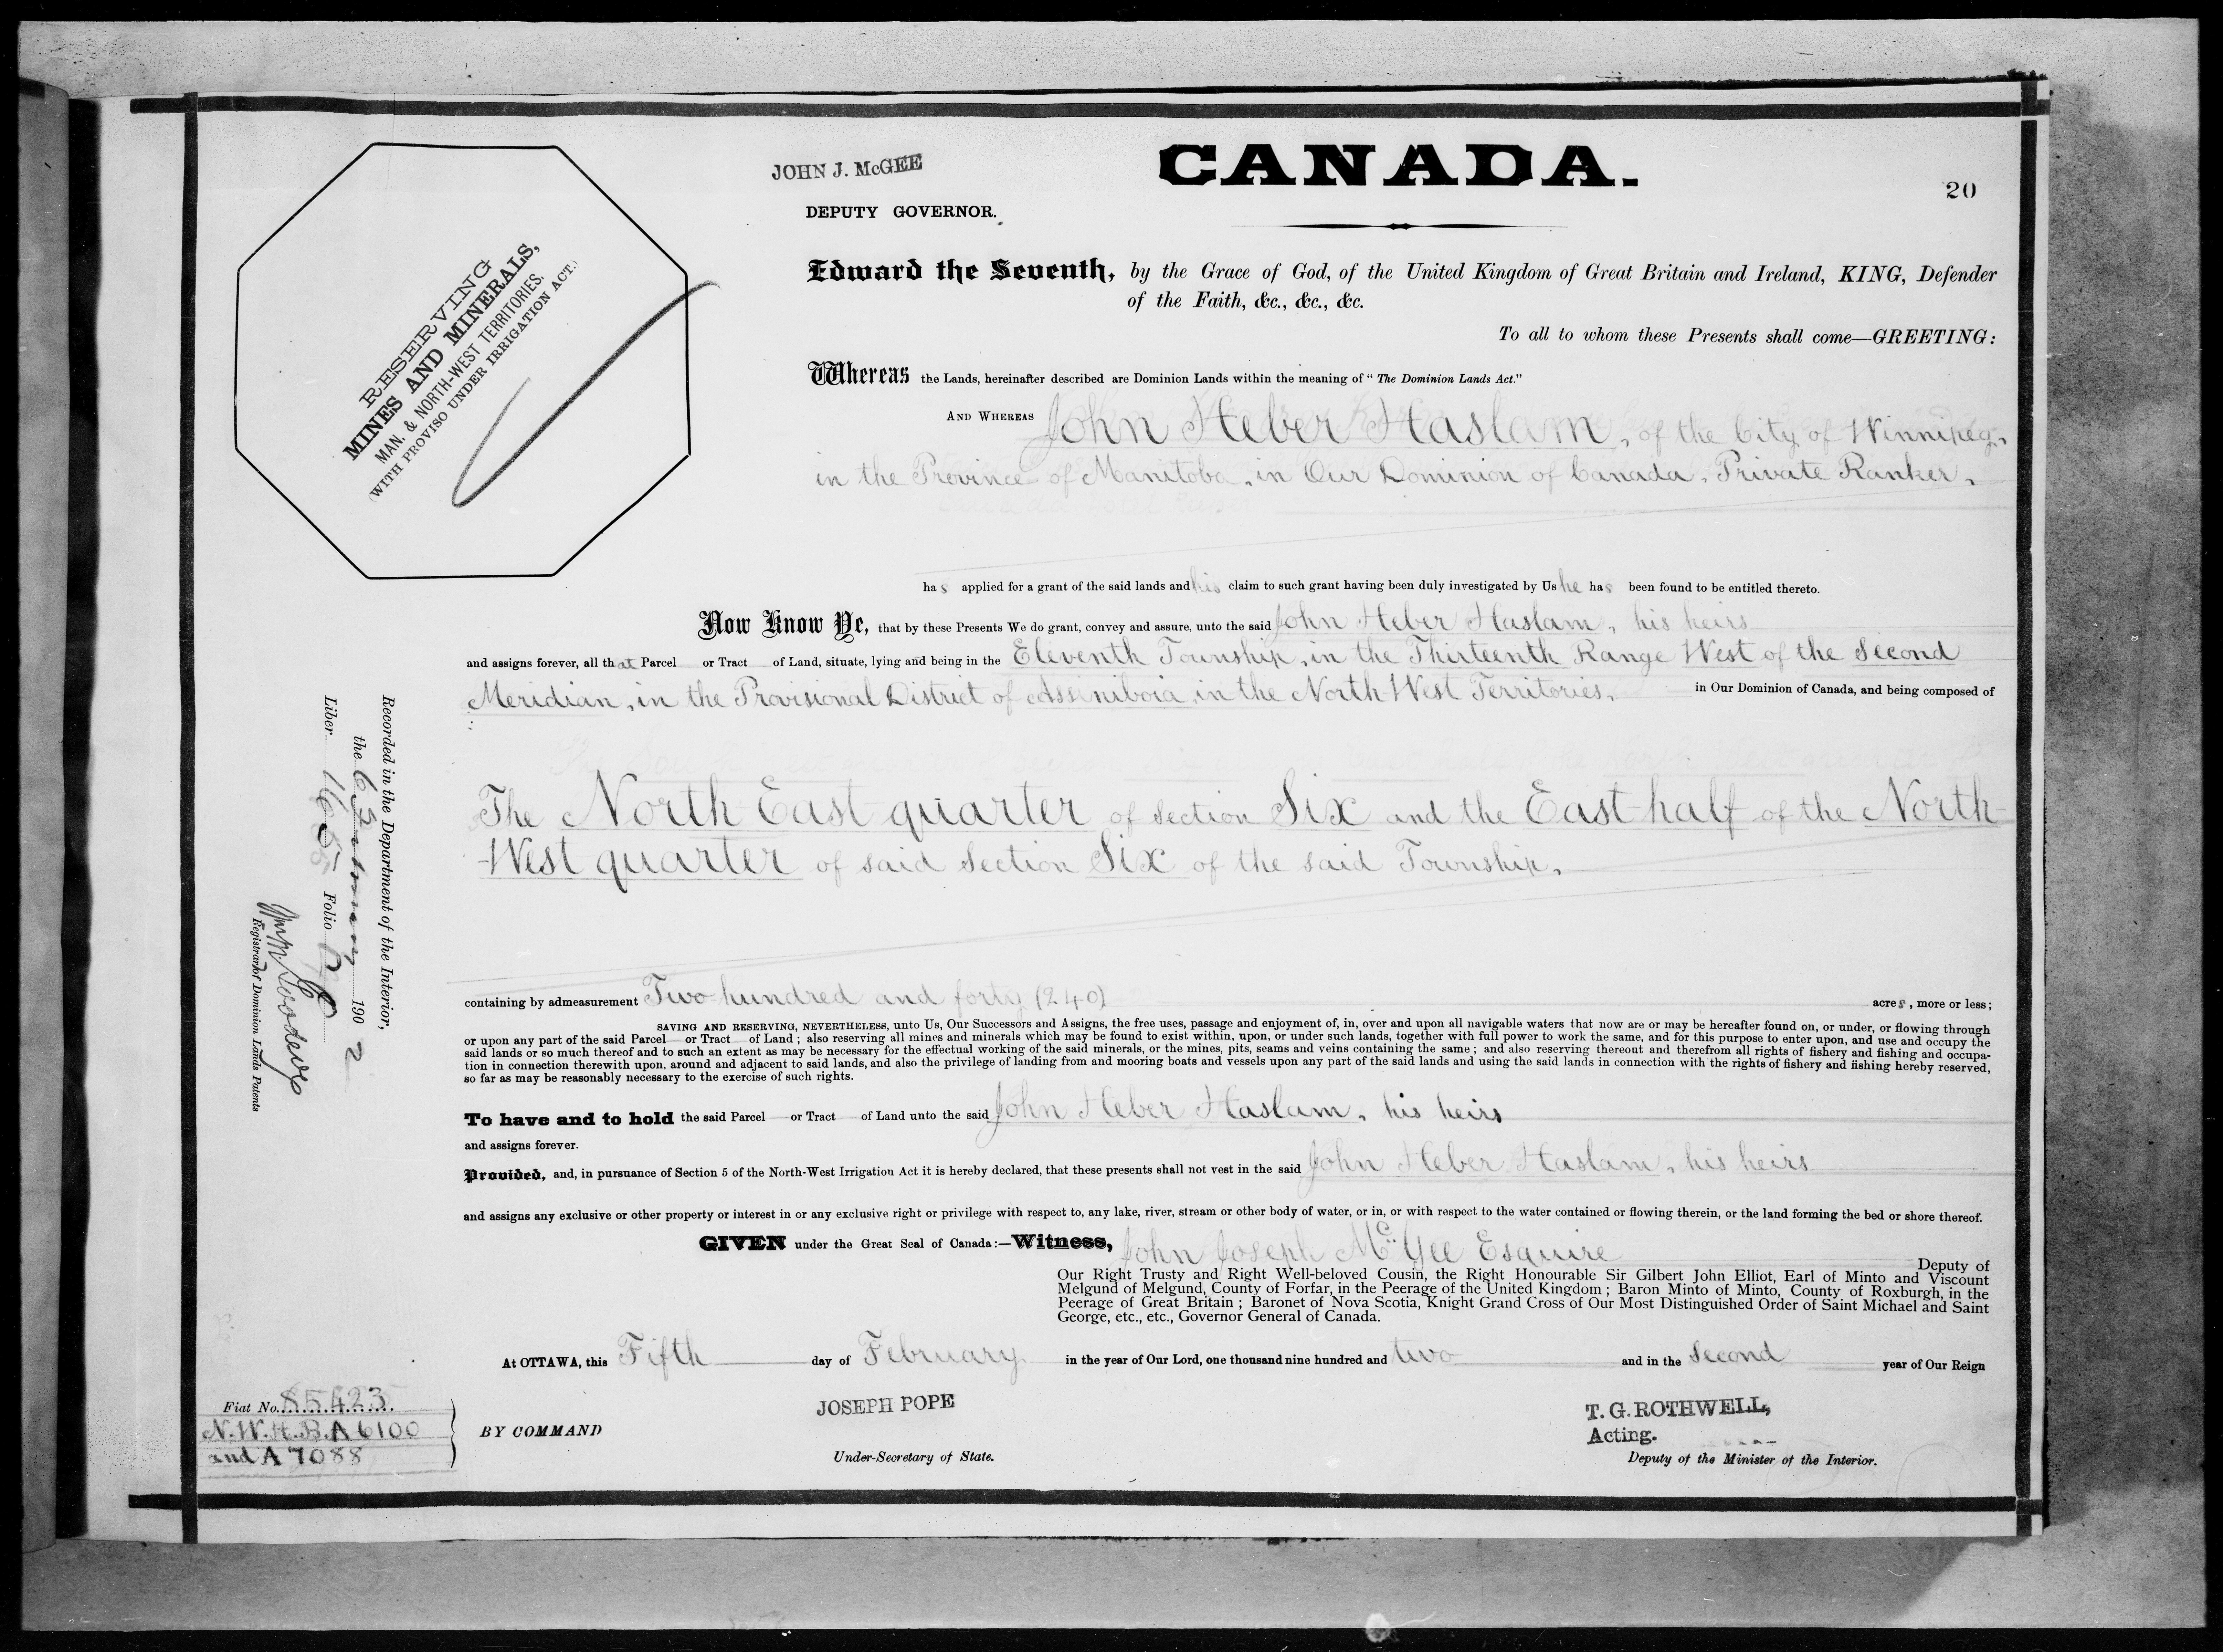 CANADA.
20
JOHN J. McGEE
DEPUTY GOVERNOR.
RESERVING
MINES AND MINERALS,
MAN. & NORTH-WEST TERRITORIES.
(WITH PROVISO UNDER IRRIGATION ACT.)
Edward the Seventh, by the Grace of God, of the United Kingdom of Great Britain and Ireland, KING, Defender
of the Faith, &c., &c., &c.
To all to whom these Presents shall come—GREETING:
Whereas the Lands, hereinafter described are Dominion Lands within the meaning of "The Dominion Lands Act."
AND WHEREAS John Heber Haslam, of the City of Winnipeg,
in the Province of Manitoba, in Our Dominion of Canada, Private Ranker,
has applied for a grant of the said lands and his claim to such grant having been duly investigated by Us he has been found to be entitled thereto.
Now Know Ye, that by these Presents We do grant, convey and assure, unto the said John Heber Haslam, his heirs
and assigns forever, all that Parcel or Tract of Land, situate, lying and being in the Eleventh Township, in the Thirteenth Range West of the Second
Meridian, in the Provisional District of Assiniboia, in the North West Territories, in Our Dominion of Canada, and being composed of
The North East quarter of Section Six and the East half of the North
West quarter of said Section Six of the said Township,
containing by admeasurement Two hundred and forty (240) acres, more or less;
SAVING AND RESERVING, NEVERTHELESS, unto Us, Our Successors and Assigns, the free uses, passage and enjoyment of, in, over and upon all navigable waters that now are or may be hereafter found on, or under, or flowing through
or upon any part of the said Parcel or Tract of Land; also reserving all mines and minerals which may be found to exist within, upon, or under such lands, together with full power to work the same, and for this purpose to enter upon, and use and occupy the
said lands or so much thereof and to such an extent as may be necessary for the effectual working of the said minerals, or the mines, pits, seams and veins containing the same; and also reserving thereout and therefrom all rights of fishery and fishing and occupa-
tion in connection therewith upon, around and adjacent to said lands, and also the privilege of landing from and mooring boats and vessels upon any part of the said lands and using the said lands in connection with the rights of fishery and fishing hereby reserved,
so far as may be reasonably necessary to the exercise of such rights.
To have and to hold the said Parcel or Tract of Land unto the said John Heber Haslam, his heirs
and assigns forever.
Provided, and, in pursuance of Section 5 of the North-West Irrigation Act it is hereby declared, that these presents shall not vest in the said John Heber Haslam, his heirs
and assigns any exclusive or other property or interest in or any exclusive right or privilege with respect to, any lake, river, stream or other body of water, or in, or with respect to the water contained or flowing therein, or the land forming the bed or shore thereof.
GIVEN under the Great Seal of Canada:—Witness, John Joseph McGee Esquire Deputy of
Our Right Trusty and Right Well-beloved Cousin, the Right Honourable Sir Gilbert John Elliot, Earl of Minto and Viscount
Melgund of Melgund, County of Forfar, in the Peerage of the United Kingdom; Baron Minto of Minto, County of Roxburgh, in the
Peerage of Great Britain; Baronet of Nova Scotia, Knight Grand Cross of Our Most Distinguished Order of Saint Michael and Saint
George, etc., etc., Governor General of Canada.
At OTTAWA, this Fifth day of February in the year of Our Lord, one thousand nine hundred and two and in the Second year of Our Reign
BY COMMAND
JOSEPH POPE
Under-Secretary of State.
T. G. ROTHWELL,
Acting.
Deputy of the Minister of the Interior.
Fiat No. 85423
N.W.H.B. A 6100
and A 7088
Recorded in the Department of the Interior,
the 190 2
Liber 165 Folio
Registrar of Dominion Lands Patents